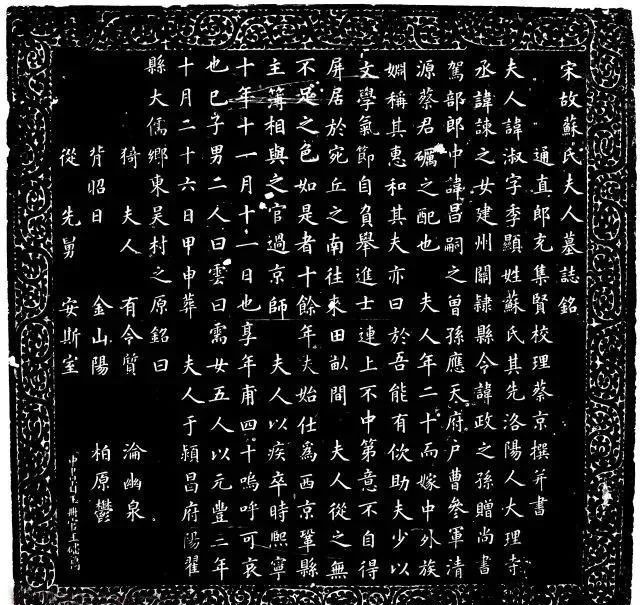 宋故蘇氏夫人墓誌銘
通直郎充集賢校理蔡京撰并書
夫人諱淑字季顯姓蘇氏其先洛陽人大理寺
丞諱諫之女建州關隸縣令諱政之孫贈尚書
駕部郎中諱昌嗣之曾孫應天府戶曹參軍清
源蔡君礪之配也 夫人年二十而嫁中外族
婣稱其惠和其夫亦曰於吾能有佽助夫少以
文學氣節自負舉進士連上不中第意不自得
屏居於宛丘之南往來田畝間 夫人從之無
不足之色如是者十餘年夫始仕為西京鞏縣
主簿相與之官過京師 夫人以疾卒時熙寧
十年十一月十一日也享年甫四十嗚呼可哀
也已子男二人曰雲曰需女五人以元豐二年
十月二十六日甲申葬 夫人于潁昌府陽翟
縣大儒鄉東吳村之原銘曰
猗夫人 有令質 淪幽泉
背昭日 金山陽 柏原鬱
從先舅 安斯室